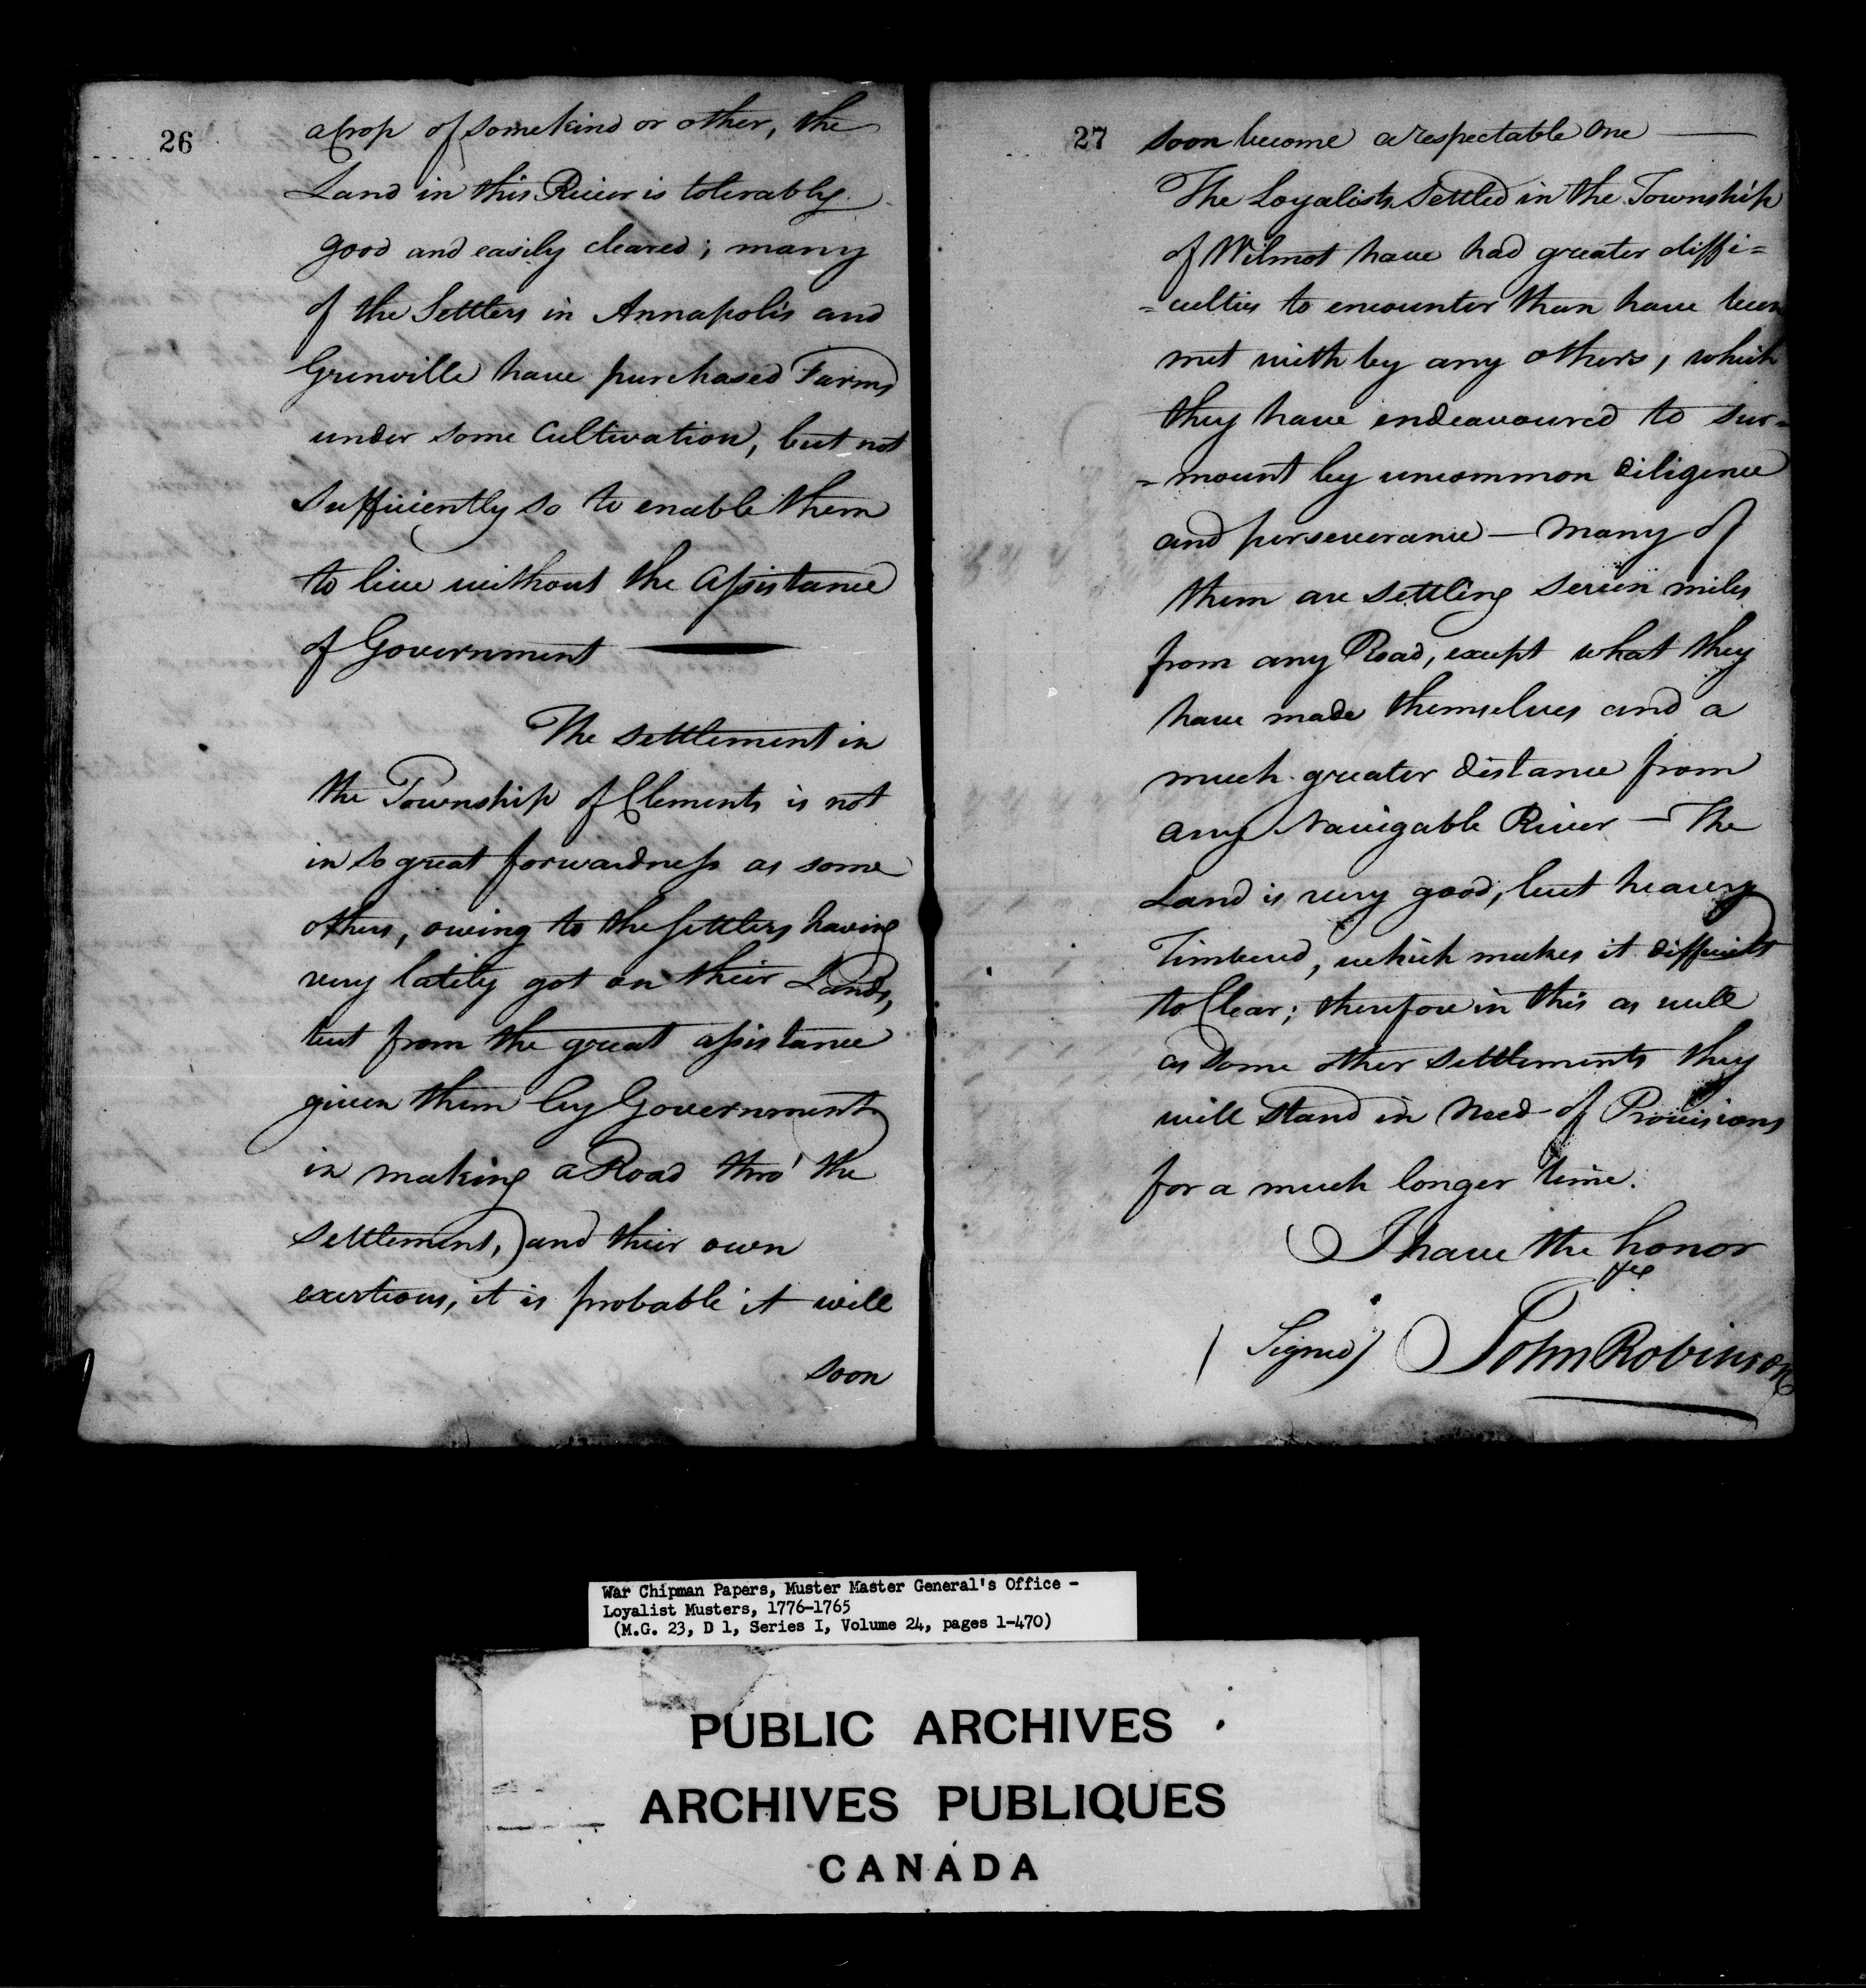 26
a Crop of some kind or other, the
Land in this River is tolerably
good and easily cleared; many
of the Settlers in Annapolis and
Grenville have purchased Farms
under some Cultivation, but not
sufficiently so to enable them
to live without the Assistance
of Government —
The settlement in
the Township of Clements is not
in so great forwardness as some
others, owing to the settlers having
very lately got on their Lands,
but from the great assistance
given them by Government
in making a Road thro' the
settlement, and their own
exertions, it is probable it will
soon
27
soon become a respectable One —
The Loyalists Settled in the Township
of Wilmot have had greater diffi=
=culties to encounter than have been
met with by any others, which
they have endeavoured to sur=
=mount by uncommon diligence
and perseverance — Many of
them are settling seven miles
from any Road, except what they
have made themselves and a
much greater distance from
any Navigable River — The
Land is very good, but heavy
Timbered, which makes it difficult
to Clear; therefore in this as well
as some other settlements they
will stand in Need of Provisions
for a much longer time.
I have the honor
&c
(Signed) John Robinson
War Chipman Papers, Muster Master General's Office -
Loyalist Musters, 1776-1765
(M.G. 23, D 1, Series I, Volume 24, pages 1-470)
PUBLIC ARCHIVES
ARCHIVES PUBLIQUES
CANADA